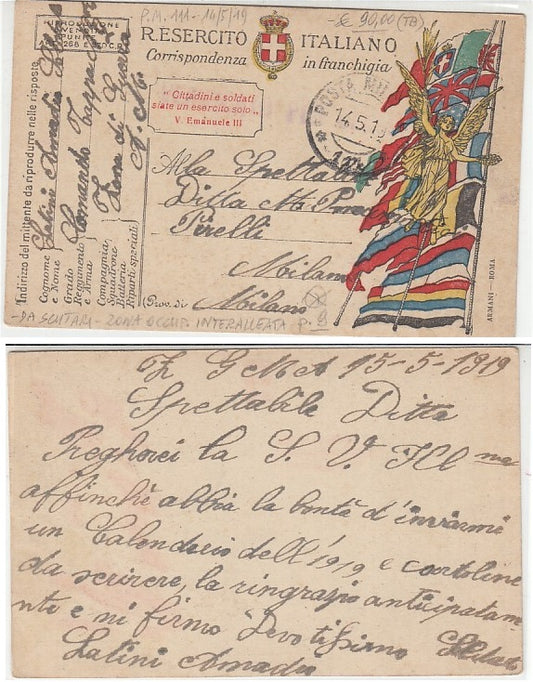 P.M. 111 - 14/5/19
€ 90,00 (TB)
RIPRODUZIONE
E VENDITA
PUNITE
R. ESERCITO ITALIANO
Corrispondenza in franchigia
"Cittadini e soldati
siate un esercito solo"
V. Emanuele III
POSTA MIL
14.5.19
Indirizzo del mittente da riprodurre nelle risposte
Cognome e Nome
Grado
Reggimento e Arma
Compagnia
Squadrone
Batteria
Riparti speciali
Latini Amadio
Comando Tappa
Zona di Guerra
Alla Spettabile
Ditta
Pirelli
Milano
Prov. di Milano
ARMANI - ROMA
- DA SCUTARI - ZONA OCCUP. INTERALLEATA P. 9
Z G M A 15-5-1919
Spettabile Ditta
Pregherei la S. V. Ill ma
affinchè abbia la bontà d'inviarmi
un Calendario dell'1919 e cartoline
da scrivere, la ringrazio anticipatam
nte e mi firmo Devotissimo Soldato
Latini Amadio